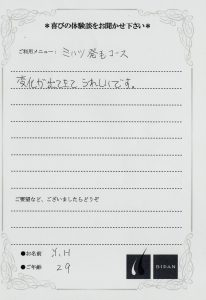 ＊喜びの体験談をお聞かせ下さい＊
ご利用メニュー: ミハツ発毛コース
変化が出てきて うれしいです。
ご要望など、ございましたらどうぞ
●お名前 Y.H
●ご年齢 29
BIDAN